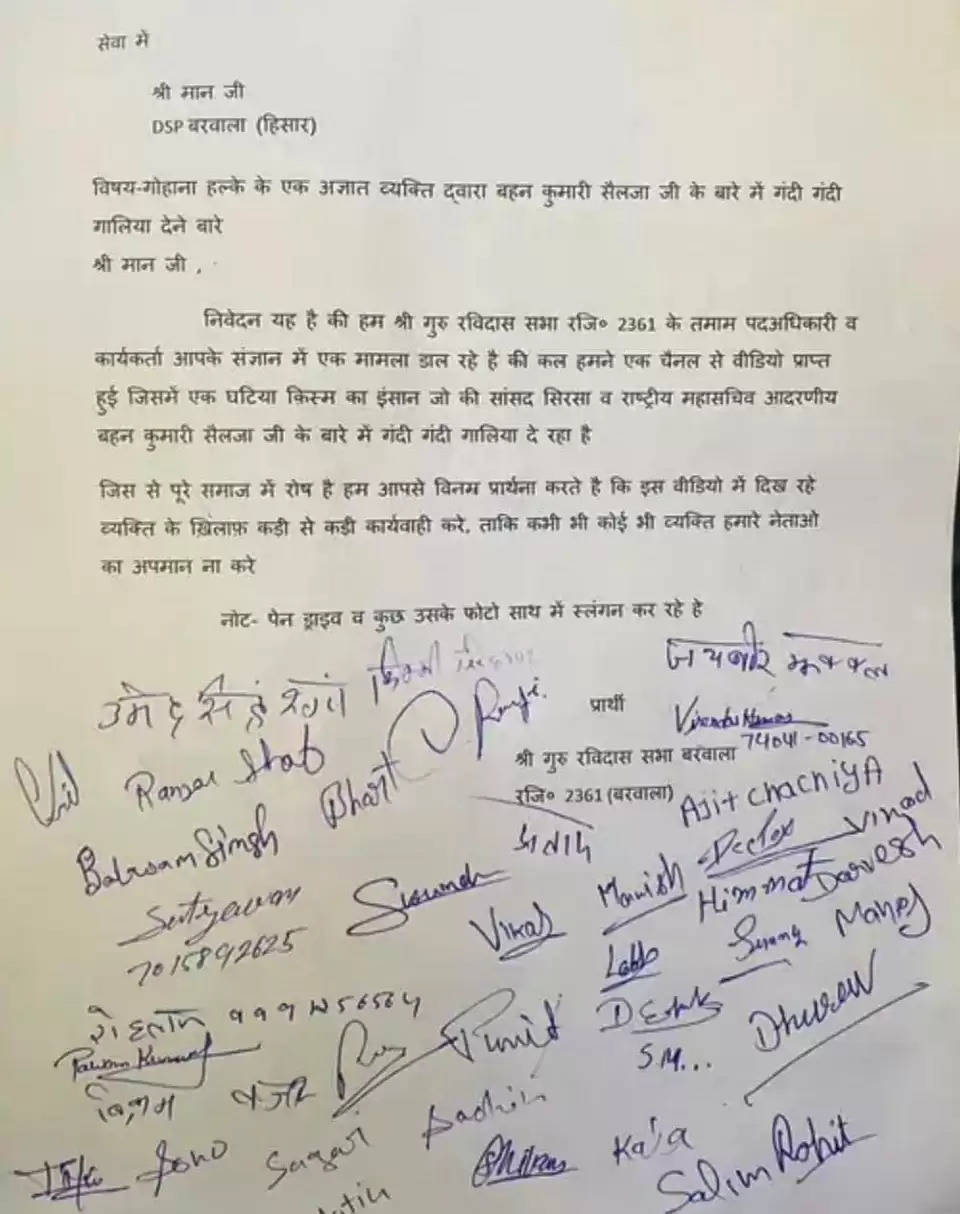 सेवा में
श्री मान जी
DSP बरवाला (हिसार)
विषय-गोहाना हल्के के एक अज्ञात व्यक्ति द्वारा बहन कुमारी सैलजा जी के बारे में गंदी गंदी
गालिया देने बारे
श्री मान जी ,
निवेदन यह है की हम श्री गुरु रविदास सभा रजि० 2361 के तमाम पदअधिकारी व
कार्यकर्ता आपके संज्ञान में एक मामला डाल रहे है की कल हमने एक चैनल से वीडियो प्राप्त
हुई जिसमें एक घटिया क़िस्म का इंसान जो की सांसद सिरसा व राष्ट्रीय महासचिव आदरणीय
बहन कुमारी सैलजा जी के बारे में गंदी गंदी गालिया दे रहा है
जिस से पूरे समाज में रोष है हम आपसे विनम्र प्रार्थना करते है कि इस वीडियो में दिख रहे
व्यक्ति के ख़िलाफ़ कड़ी से कड़ी कार्यवाही करे, ताकि कभी भी कोई भी व्यक्ति हमारे नेताओ
का अपमान ना करे
नोट- पेन ड्राइव व कुछ उसके फोटो साथ में स्लंगन कर रहे हे
प्रार्थी
Virender Kumar
74041-00165
श्री गुरु रविदास सभा बरवाला
रजि० 2361 (बरवाला)
Ajit Chachiya
Balwan Singh
Bharat
Satyawan
7015892625
Vikas
Manish
Vinod
Himmat
Darvesh
Manoj
Pawan Kumar
Punit
S.M...
Dhurev
विक्रम
Sonu
Sagar
Sachin
Kala
Salim
Rohit